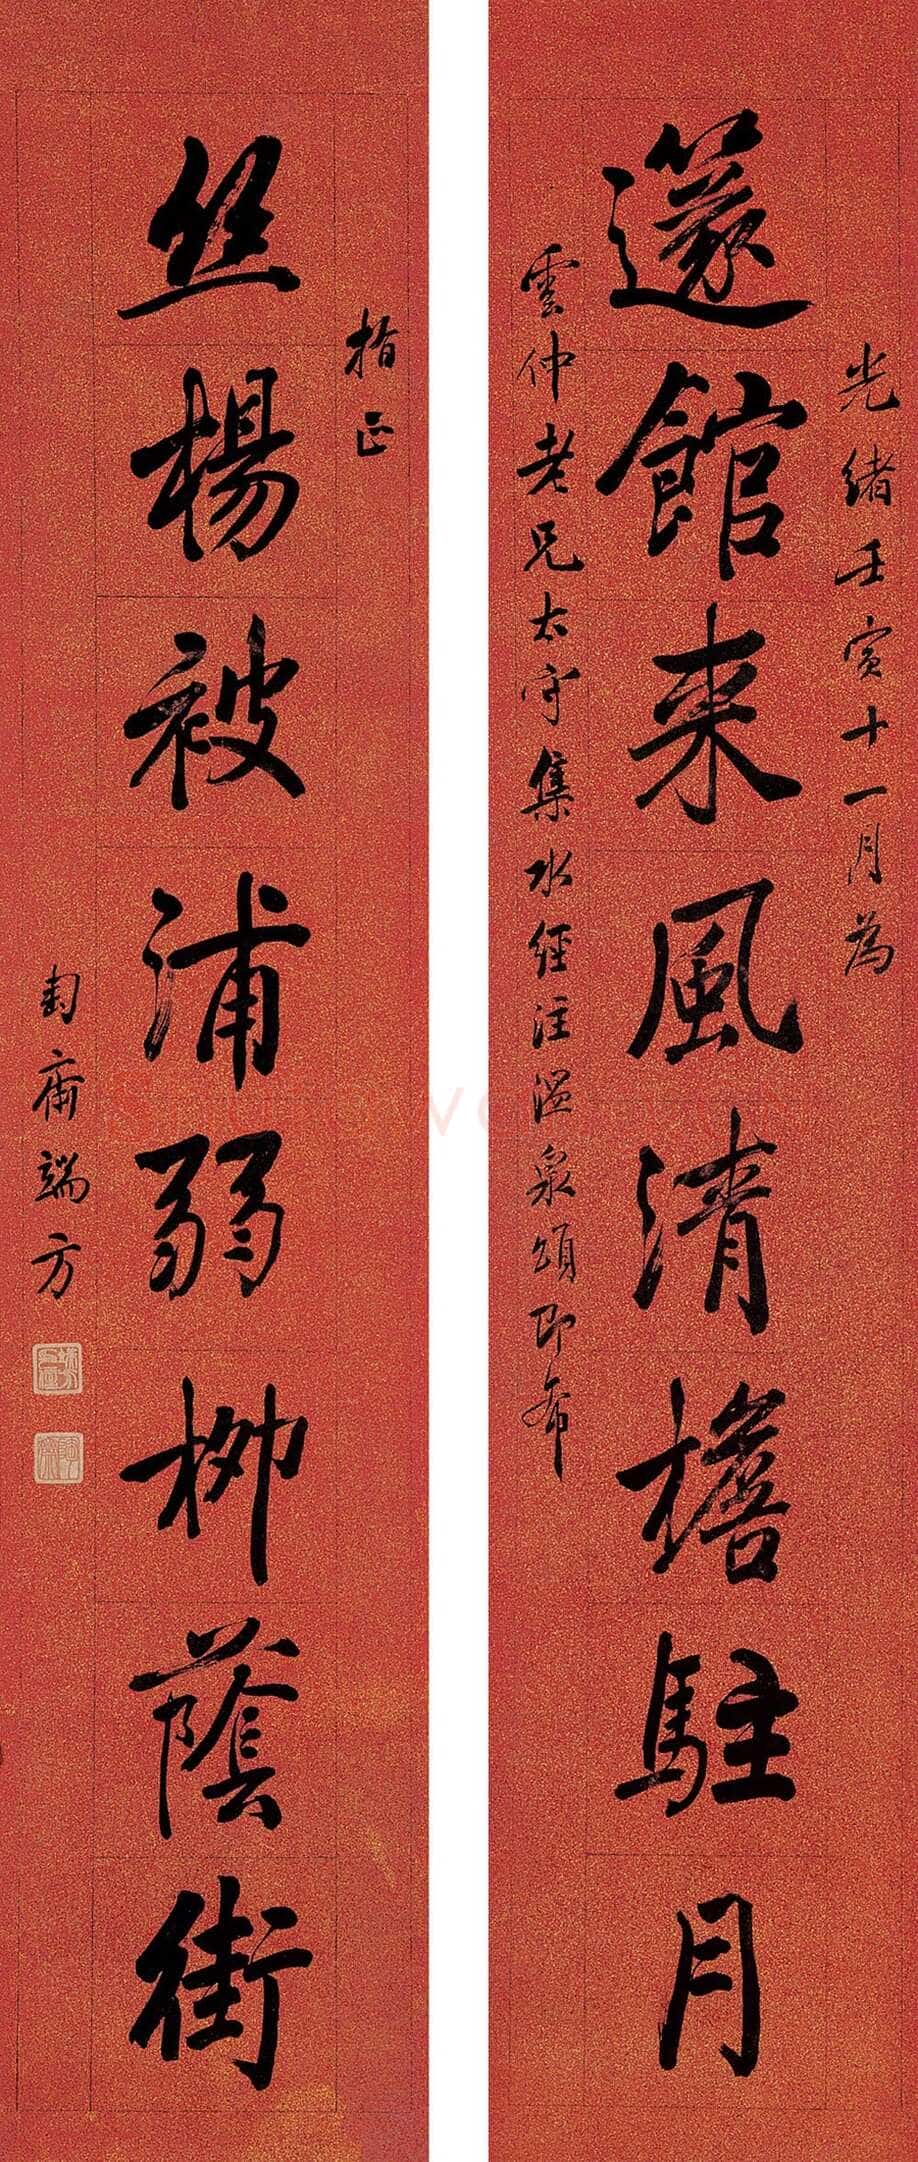 邃館來風清檐駐月
光緒壬寅十一月為
雲仲老兄太守集水經注溫泉頌即希
丝楊被浦弱柳蔭街
指正
匋齋端方